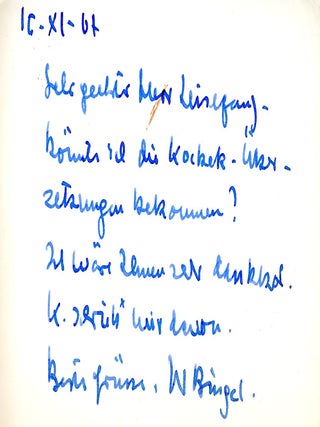 16-XI-67
Sehr geehrter Herr Leisegang -
könnte ich die Kocbek-Über-
setzungen bekommen?
Ich wäre Ihnen sehr dankbar.
K. schrieb mir davon.
Beste Grüsse, W Bingel.